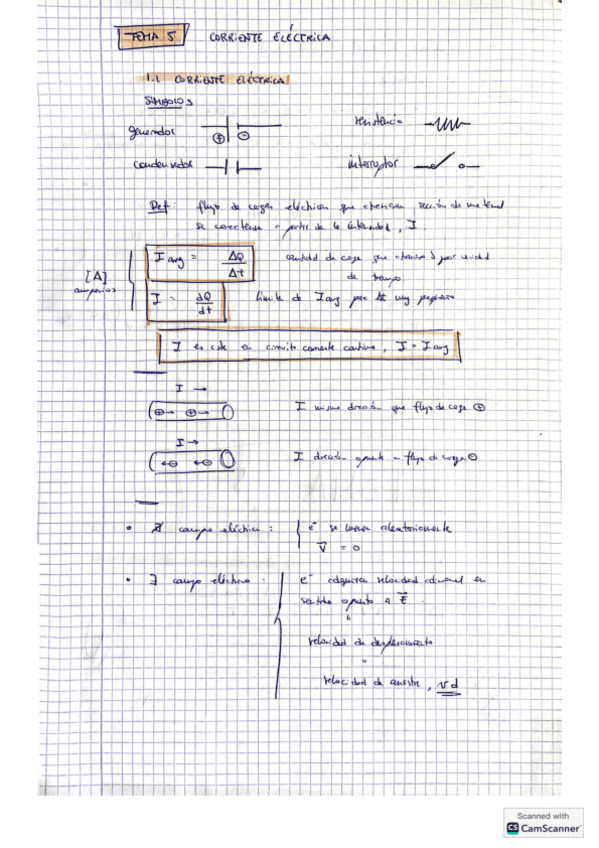 TEMA 5 CORRIENTE ELÉCTRICA
1.1 CORRIENTE ELÉCTRICA
SÍMBOLOS
generador ⊕ ⊖ resistencia
condensador interruptor
Def: flujo de cargas eléctricas que atraviesan sección de
se caracteriza a partir de la intensidad, I.
I avg = ΔQ / Δt cantidad de carga que atraviesa S por unidad
de tiempo
[A]
amperios
I = dQ / dt límite de I avg para Δt muy pequeño
I es cte en circuito corriente continua, I = I avg
I →
⊕→ ⊕→ I misma dirección que flujo de carga ⊕
I →
←⊖ ←⊖ I dirección opuesta a flujo de carga ⊖
• ∄ campo eléctrico : e⁻ se mueven aleatoriamente
v = 0
• ∃ campo eléctrico : e⁻ adquieren velocidad adicional en
sentido opuesto a E
velocidad de desplazamiento
o
velocidad de arrastre, vd
Scanned with
CS CamScanner